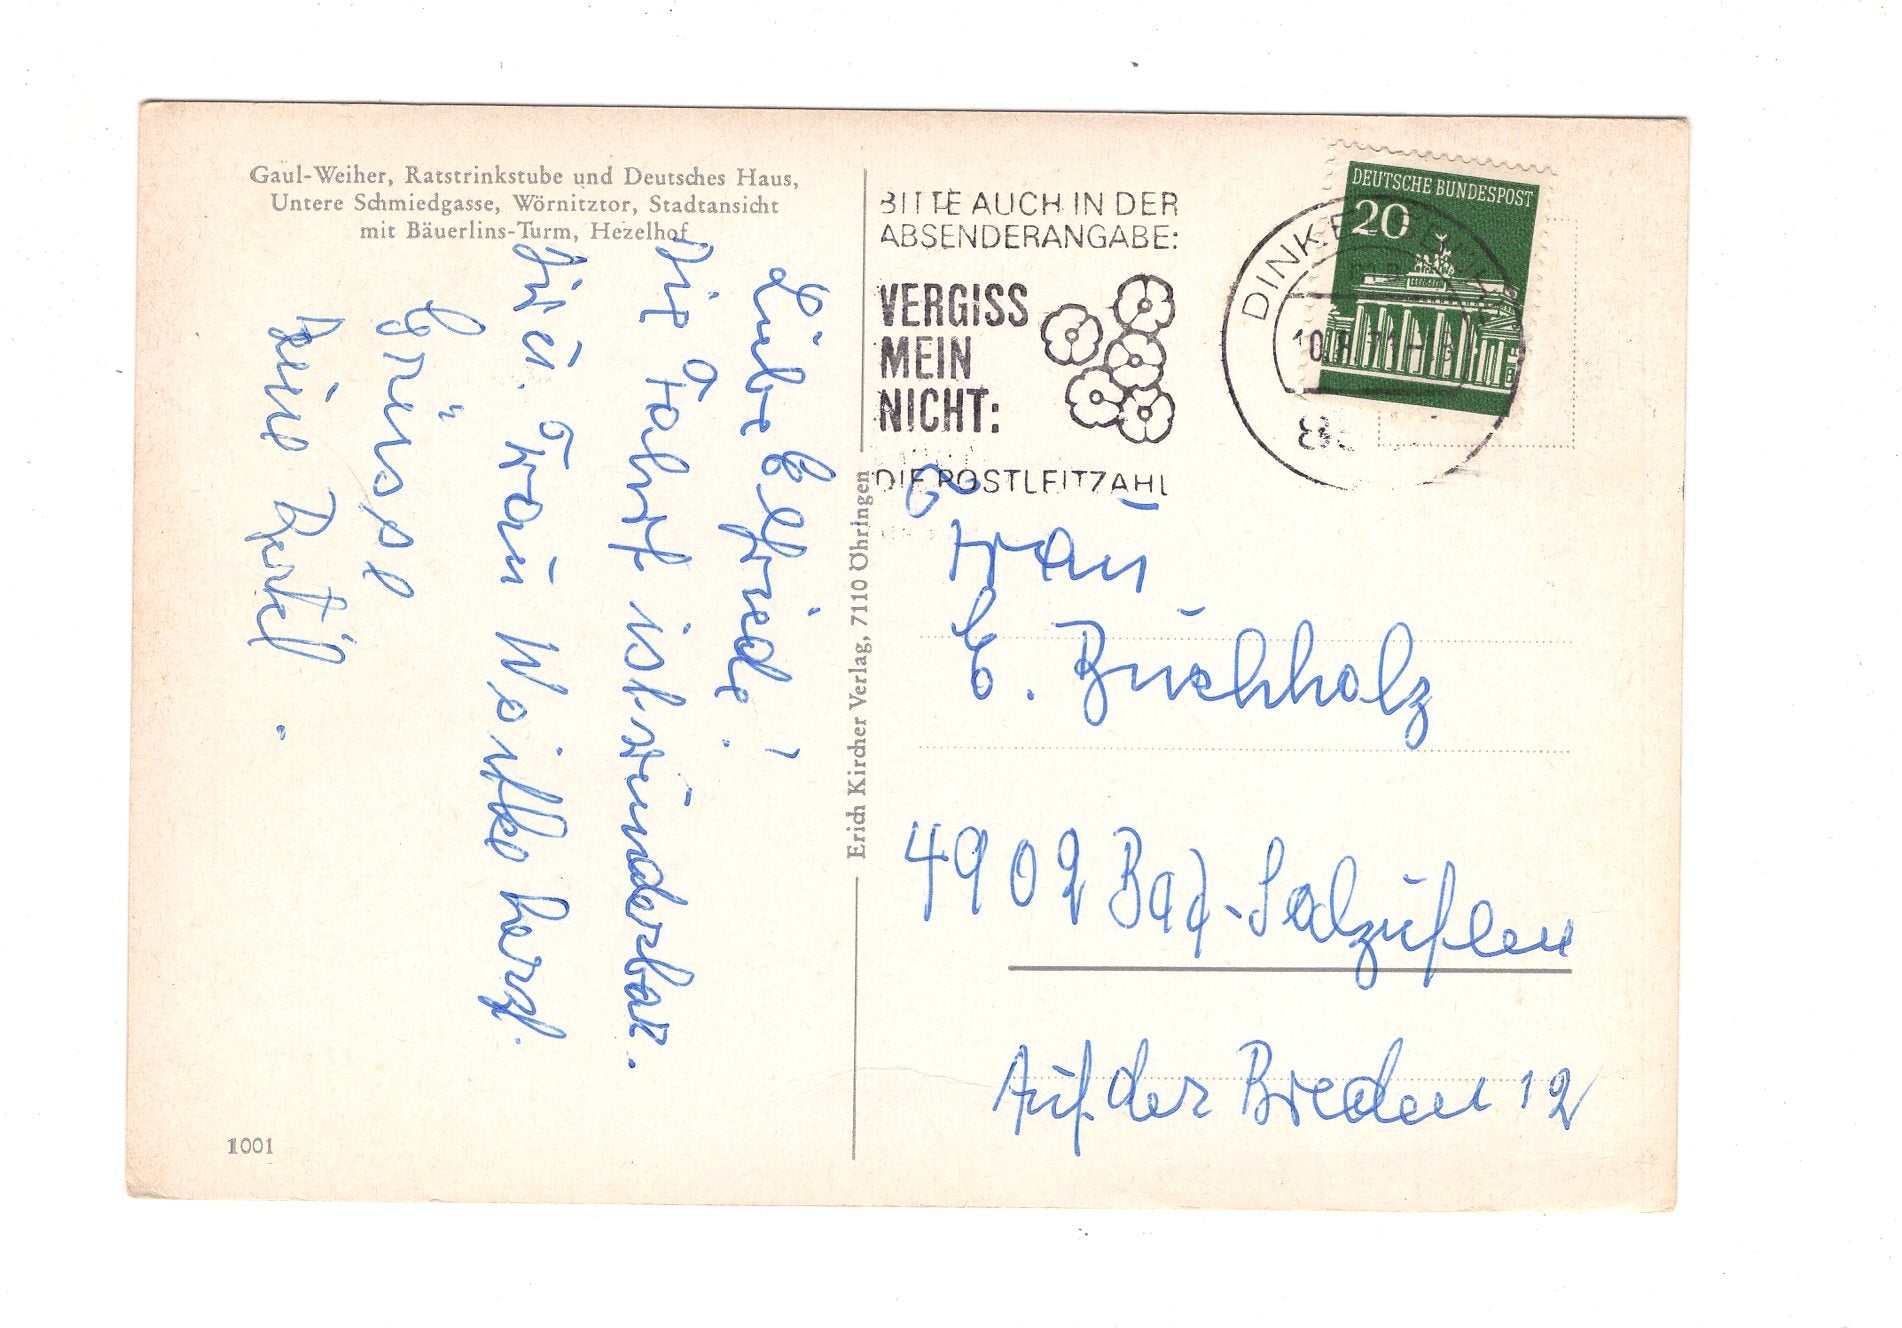 Gaul-Weiher, Ratstrinkstube und Deutsches Haus,
Untere Schmiedgasse, Wörnitztor, Stadtansicht
mit Bäuerlins-Turm, Hezelhof
Liebe Elfriede!
Die Fahrt ist wunderbar.
Dir u. Frau herzl.
Grüsse
Deine
1001
Erich Kircher Verlag, 7110 Öhringen
BITTE AUCH IN DER
ABSENDERANGABE:
VERGISS
MEIN
NICHT:
DIE POSTLEITZAHL
DEUTSCHE BUNDESPOST
20
Frau
E. Buchholz
4902 Bad-Salzuflen
Auf der Breden 12